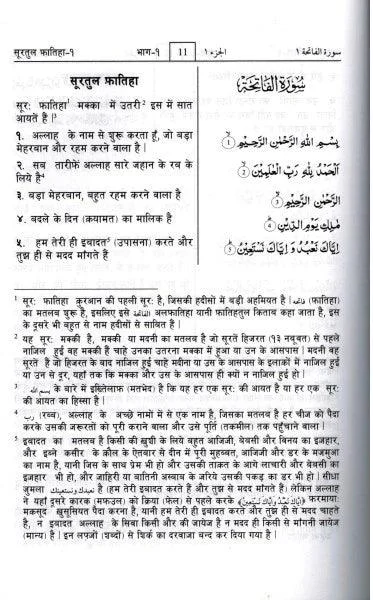 सूरतुल फातिहा-१ भाग-१ 11 الجزء ١ سورة الفاتحة ١
सूरतुल फातिहा
सूर: फातिहा¹ मक्का में उतरी² इस में सात
आयतें हैं।³
१. अल्लाह के नाम से शुरू करता हूँ, जो बड़ा
मेहरबान और रहम करने वाला है।
२. सब तारीफें अल्लाह सारे जहान के रब के
लिये है⁴
३. बड़ा मेहरबान, बहुत रहम करने वाला है
४. बदले के दिन (क़यामत) का मालिक है
५. हम तेरी ही इबादत⁵ (उपासना) करते और
तुझ ही से मदद मांगते हैं
سُورَةُ الْفَاتِحَةِ
بِسْمِ اللهِ الرَّحْمٰنِ الرَّحِيْمِ ۝1
اَلْحَمْدُ لِلّٰهِ رَبِّ الْعٰلَمِيْنَ ۝2
الرَّحْمٰنِ الرَّحِيْمِ ۝3
مٰلِكِ يَوْمِ الدِّيْنِ ۝4
اِيَّاكَ نَعْبُدُ وَ اِيَّاكَ نَسْتَعِيْنُ ۝5
¹ सूर: फातिहा क़ुरआन की पहली सूर: है, जिसकी हदीसों में बड़ी अहमियत है। فاتحة (फातिहा)
का मतलब शुरू है, इसलिए इसे الفاتحة अलफातिहा यानी फातिहतुल किताब कहा जाता है, इस
के दूसरे भी बहुत से नाम हदीसों से साबित हैं।
² यह सूर: मक्की है, मक्की या मदनी का मतलब है जो सूरतें हिजरत (१३ नबूवत) से पहले
नाजिल हुई वह मक्की हैं चाहे उनका उतरना मक्का में हुआ या उन के आसपास। मदनी वह
सूरतें हैं जो हिजरत के बाद नाजिल हुई चाहे मदीना या उस के आसपास के इलाक़ों में नाजिल हुई
या उन से दूर, यहाँ तक कि मक्का और उस के आसपास ही क्यों न नाजिल हुई हो।
³ بسم الله के बारे में इख़्तेलाफ़ (मतभेद) है कि यह हर एक सूर: की आयत है या हर एक सूर:
की आयत का हिस्सा है।
⁴ رب (रब्ब), अल्लाह के अच्छे नामों में से एक नाम है, जिसका मतलब है हर चीज को पैदा
करके उसकी जरूरतों को पूरी कराने वाला और उसे पूर्ति (तकमील) तक पहुँचाने वाला।
⁵ इबादत का मतलब है किसी की ख़ुशी के लिये बहुत आजिजी, बेवसी और विनय का इजहार,
और इब्ने कसीर के क़ौल के ऐतबार से दीन में पूरी मुहब्बत, आजिजी और डर के मजमुआ
का नाम है, यानी जिस के साथ प्रेम भी हो और उसकी ताक़त के आगे लाचारी और बेवसी का
इजहार भी हो, और जाहिरी या वातिनी असबाब के जरिये उसकी पकड़ का डर भी हो। सीधा
जुमला نعبدك ونستعينك है (हम तेरी इबादत करते हैं और तुझ से मदद मांगते हैं) लेकिन अल्लाह
ने यहाँ दूसरे कारक (मफ़ऊल) को क्रिया (फेल) से पहले करके (إِيَّاكَ نَعْبُدُ وَإِيَّاكَ نَسْتَعِينُ) फरमाया,
मकसूद ख़ुसूसियत पैदा करना है, यानी हम तेरी ही इबादत करते और तुझ से ही मदद चाहते
है, न इबादत अल्लाह के सिवा किसी और की जायेज है न मदद ही किसी से मांगनी जायेज
(मान्य) है। इन लफ्जों (शब्दों) से शिर्क का दरवाजा बन्द कर दिया गया है।